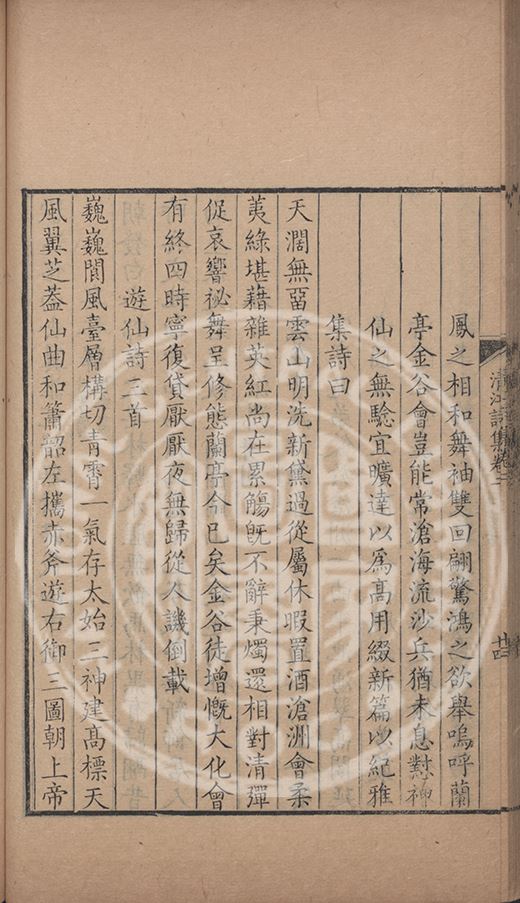 鳳之相和舞袖雙回翩驚鴻之欲舉嗚呼蘭
亭金谷會豈能常滄海流沙兵猶未息懟神
仙之無驗宜曠達以爲高用綴新篇以紀雅
集詩曰
天濶無留雲山明洗新黛過從屬休暇置酒滄洲會柔
荑綠堪藉雜英紅尚在累觴旣不辭秉燭還相對清彈
促哀響祕舞呈修態蘭亭今已矣金谷徒增慨大化會
有終四時寧復貸厭厭夜無歸從人譏倒載
遊仙詩三首
巍巍閬風臺層構切青霄一氣存太始三神建高標天
風翼芝葢仙曲和簫韶左攜赤斧遊右御三圖朝上帝
清江詩集卷二